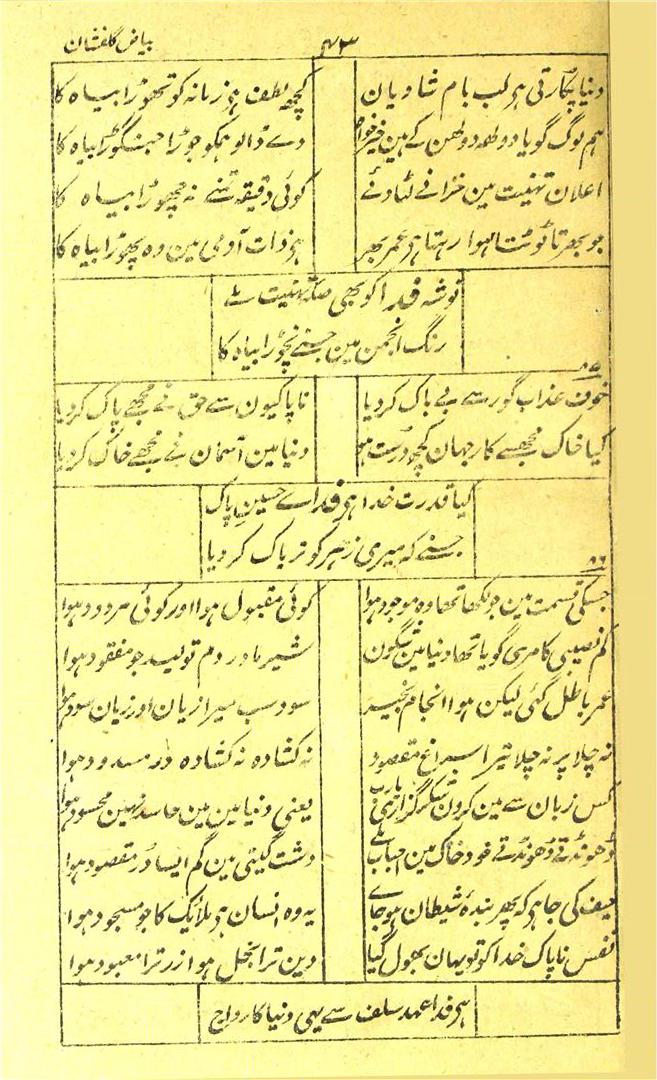 بیاض گلفشان
۴۳
دنیا پکارتی ہر لب بام شادیان
کچھ لطف ہر زمانہ کو تھوڑا بیاہ کا
ہم لوگ گویا دولھہ دولھن کے ہین خیرخواہ
دے ڈالو ہمکو جوڑا بیاہ کا
اعلان تہنیت مین خزانے لٹا دئے
کوئی دقیقہ تمنے نہ چھوڑا بیاہ کا
جو بھرتا ٹوٹتا ہوا رہتا ہر عمر بھر
ہر ذات آدمی مین وہ پھوڑا بیاہ کا
نوشہ فدا کو بھی صلۂ تہنیت ملے
رنگ انجمن مین جسنے نچوڑا بیاہ کا
خوف عذاب گور سے بے باک کر دیا
ناپاکیون سے حق نے مجھے پاک کر دیا
کیا خاک مجھسے کار جہان کچھ درست ہو
دنیا مین آسمان نے مجھے خاک کر دیا
کیا قدرت خدا ہر فدا اے حسین پاک
جسنے کہ میری زہر کو تریاک کر دیا
۸۶
جسکی قسمت مین جو لکھا تھا وہ موجود ہوا
کوئی مقبول ہوا اور کوئی مردود ہوا
کم نصیبی کا مری گویا تھا دنیا مین شگون
شیر مادر دم تولید جو مفقود ہوا
عمر باطل گئی لیکن ہوا انجام بخیر
سود سب میرا زیان اور زیان سود ہوا
نہ چلا پر نہ چلا تیرا سراغ مقصود
نہ کشادہ نہ کشادہ در مسدود ہوا
کس زبان سے مین کرون شکر گزاری یارب
یعنی دنیا مین مین حاسد نہین محسود ہوا
ڈھونڈتے ڈھونڈتے خود خاک مین احباب ملے
دشت گیتی مین گم ایسا در مقصود ہوا
حیف کی جا ہر کہ پھر بندۂ شیطان ہو جائے
یہ وہ انسان ہر ملایک کا جو مسجود ہوا
نفس ناپاک خدا کو تو یہان بھول گیا
دین ترا بخل ہوا زر ترا معبود ہوا
ہر فدا عہد سلف سے یہی دنیا کا رواج